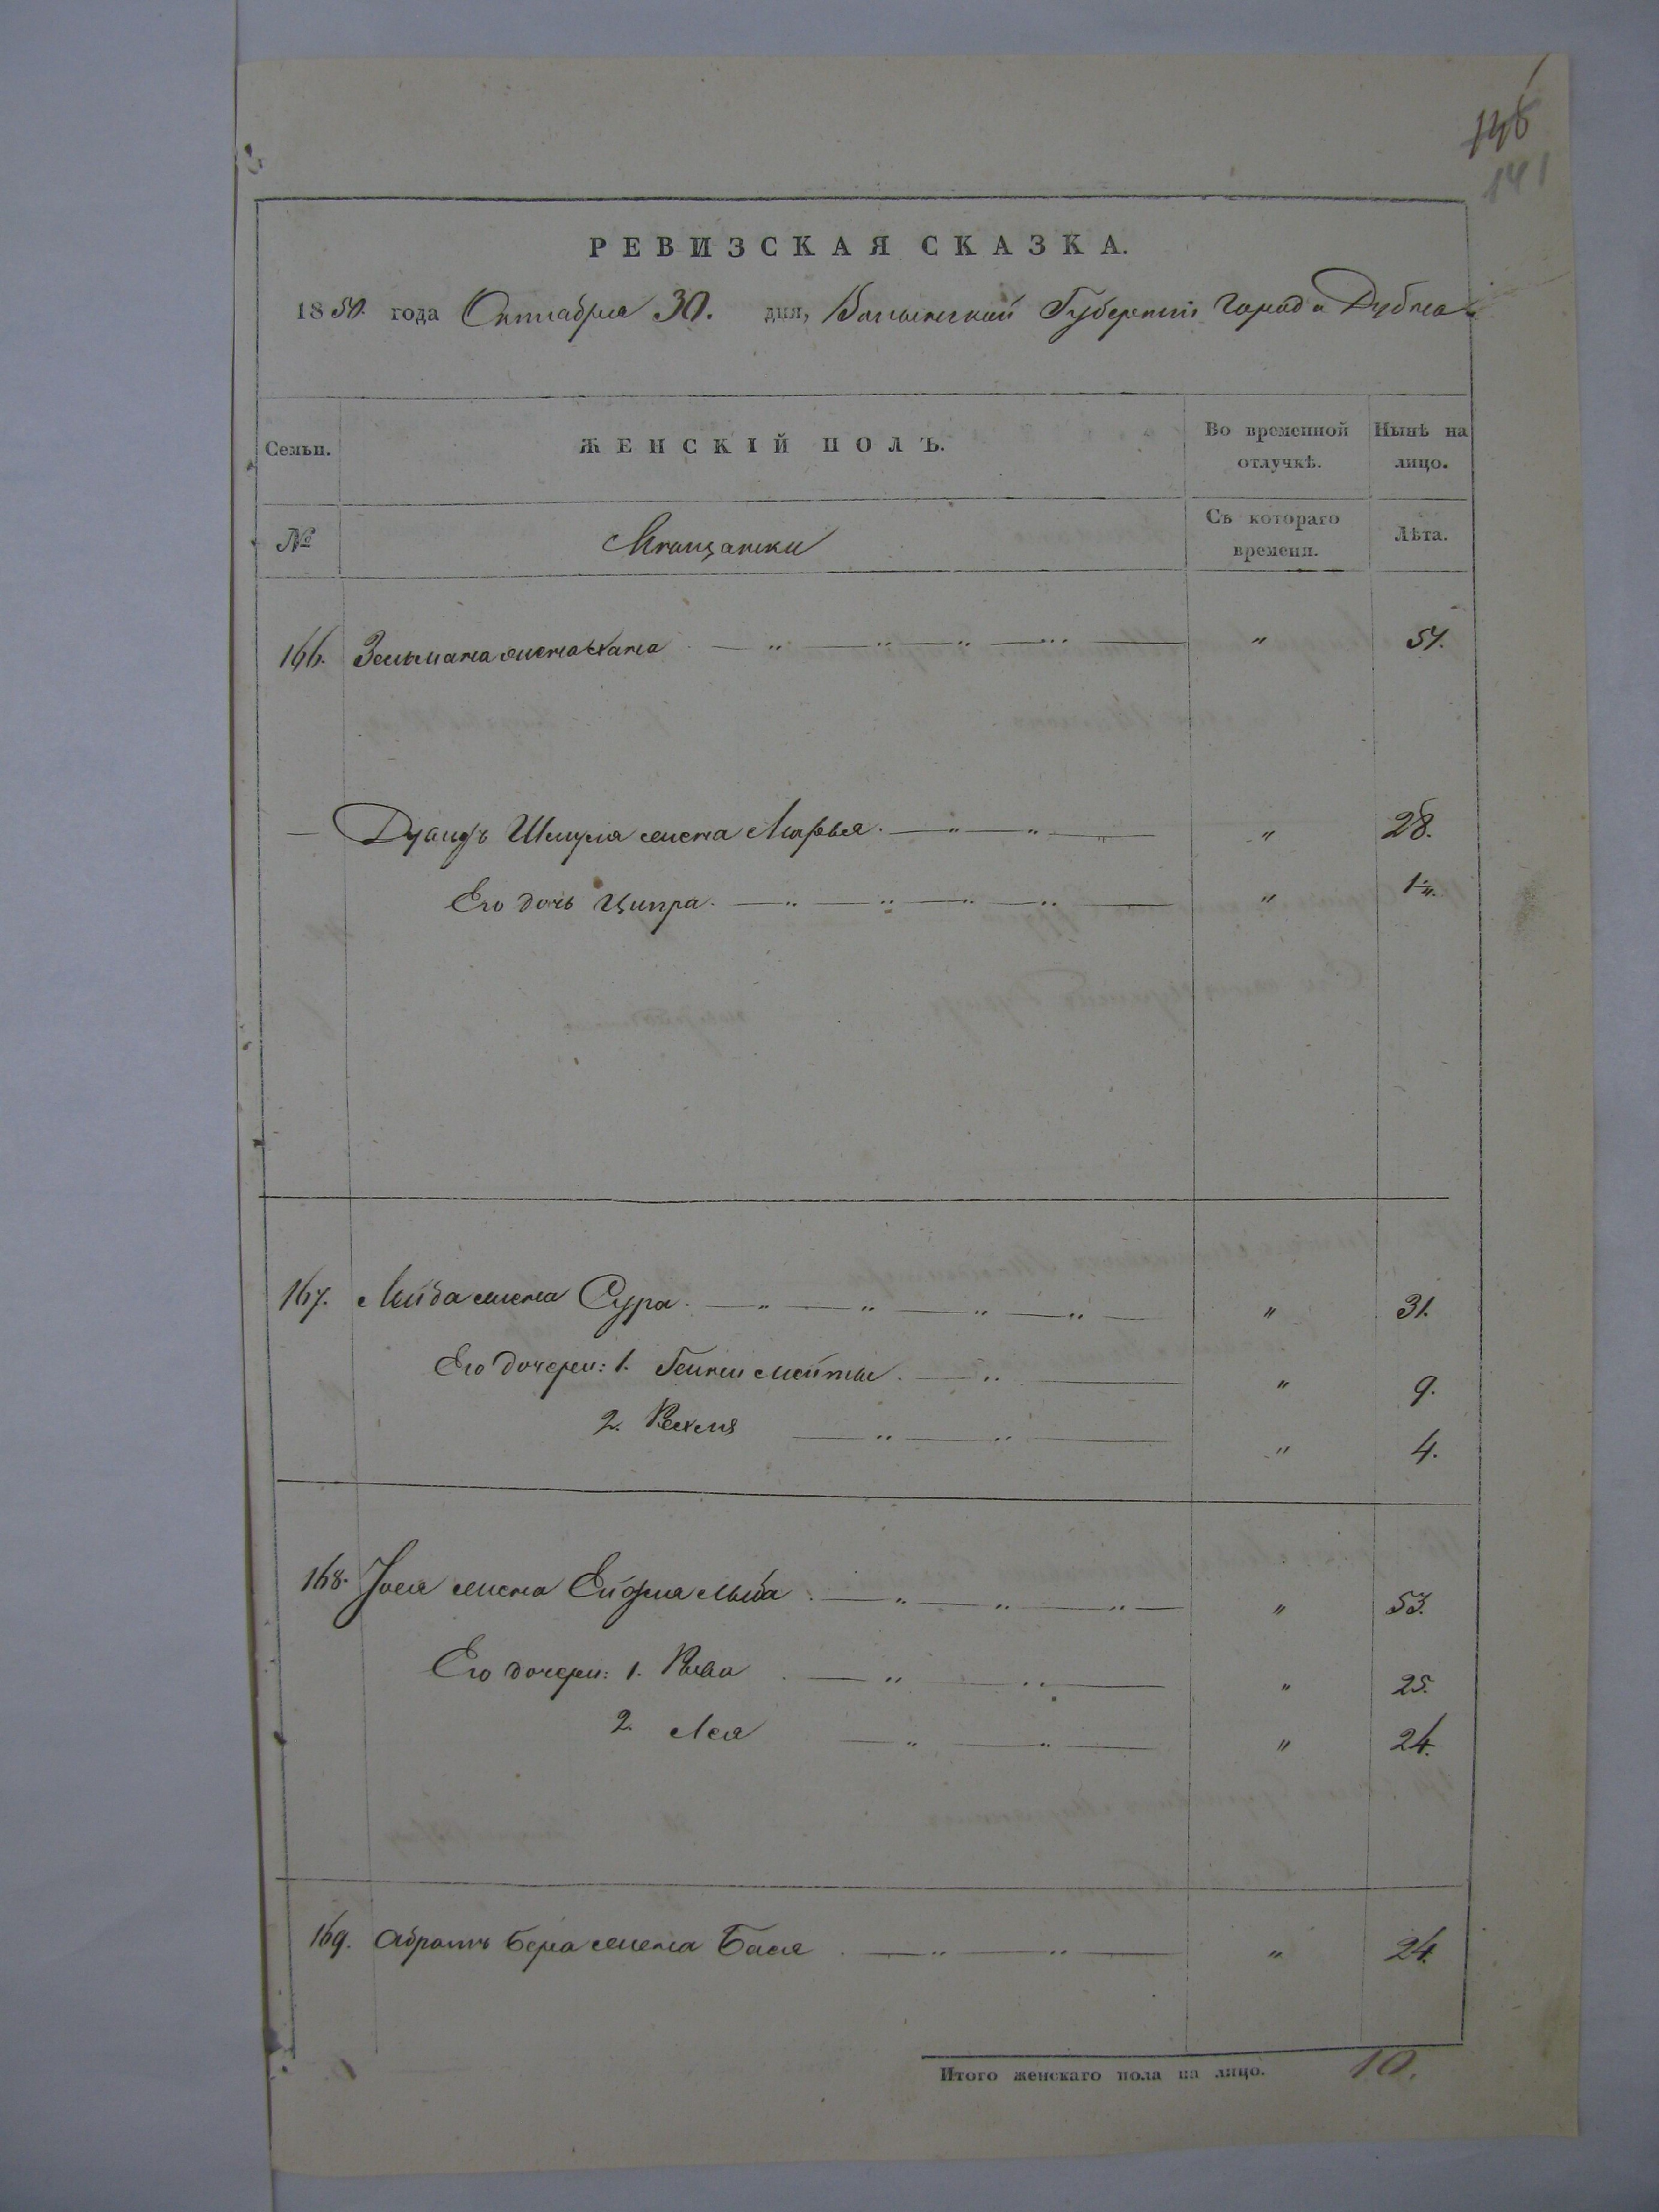 148
141
РЕВИЗСКАЯ СКАЗКА.
1850. года Октабря 30. дня, Волынской Губернии города Дубна
Семьи. ЖЕНСКІЙ ПОЛЪ. Во временной отлучкѣ. Нынѣ на лицо.
№ Мещанки Съ котораго времени. Лѣта.
166. Зельмана жена Хана " 51.
Шмуля жена Марьея " 28.
Его дочь Ципра. " 1
167. Лейба жена Сура. " 31.
Его дочери: 1. " 9.
2. Рехля " 4.
168. жена " 53.
Его дочери: 1. Рива " 25.
2. Лея " 24.
169. Абрамъ Бера жена Бася " 24.
Итого женскаго пола на лицо. 10.